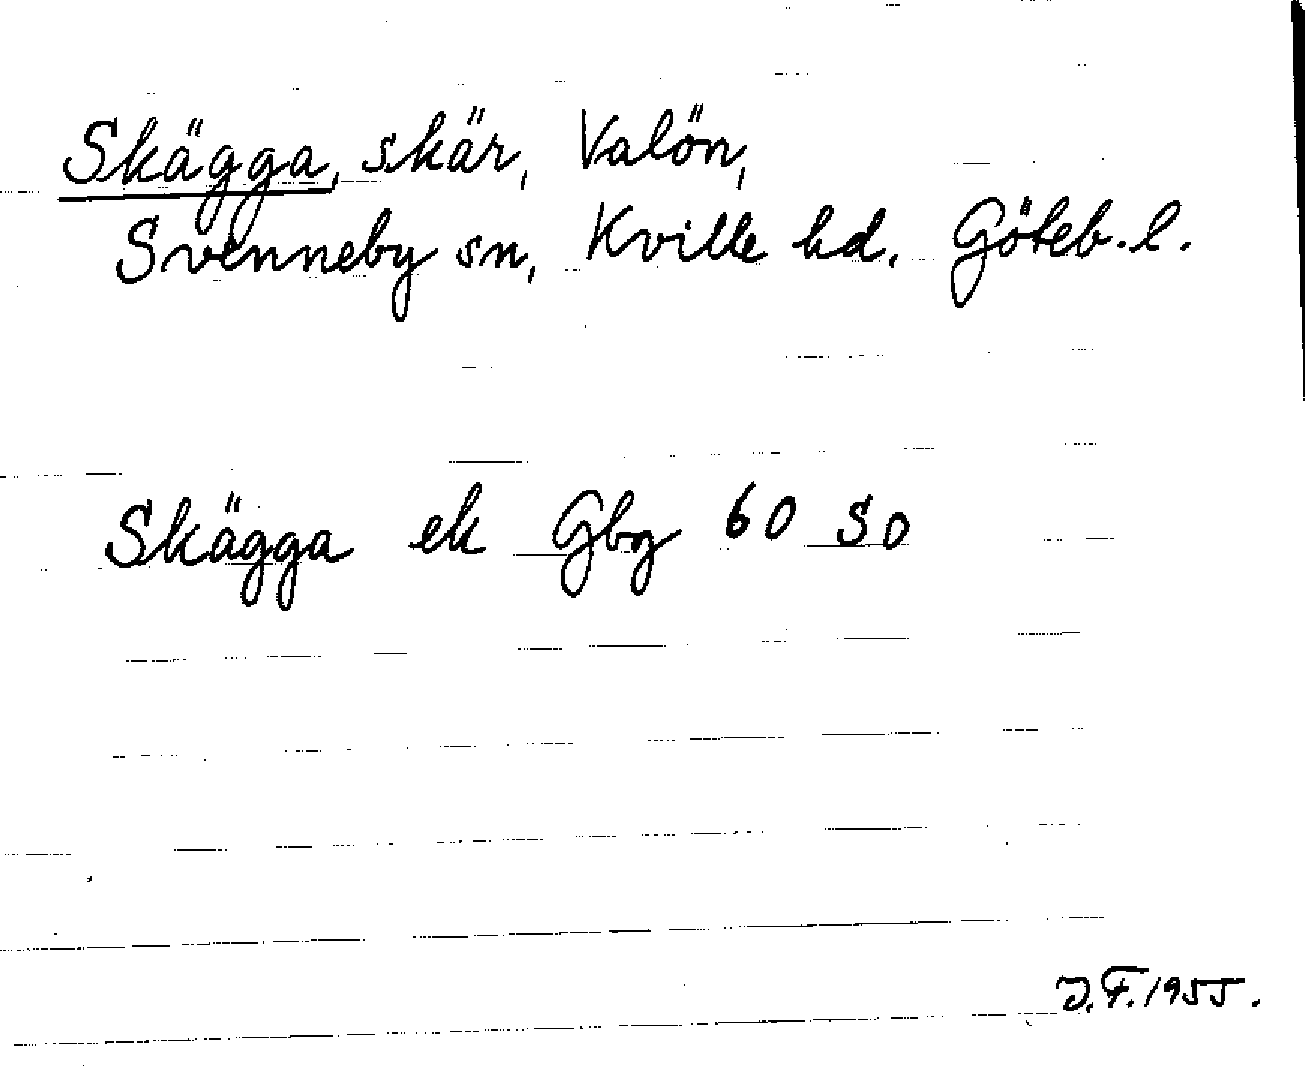 Skägga, skär, Valön,
Svenneby sn, Kville hd. Göteb. l.
Skägga ek Gbg 60 SO
J.F. 1955.